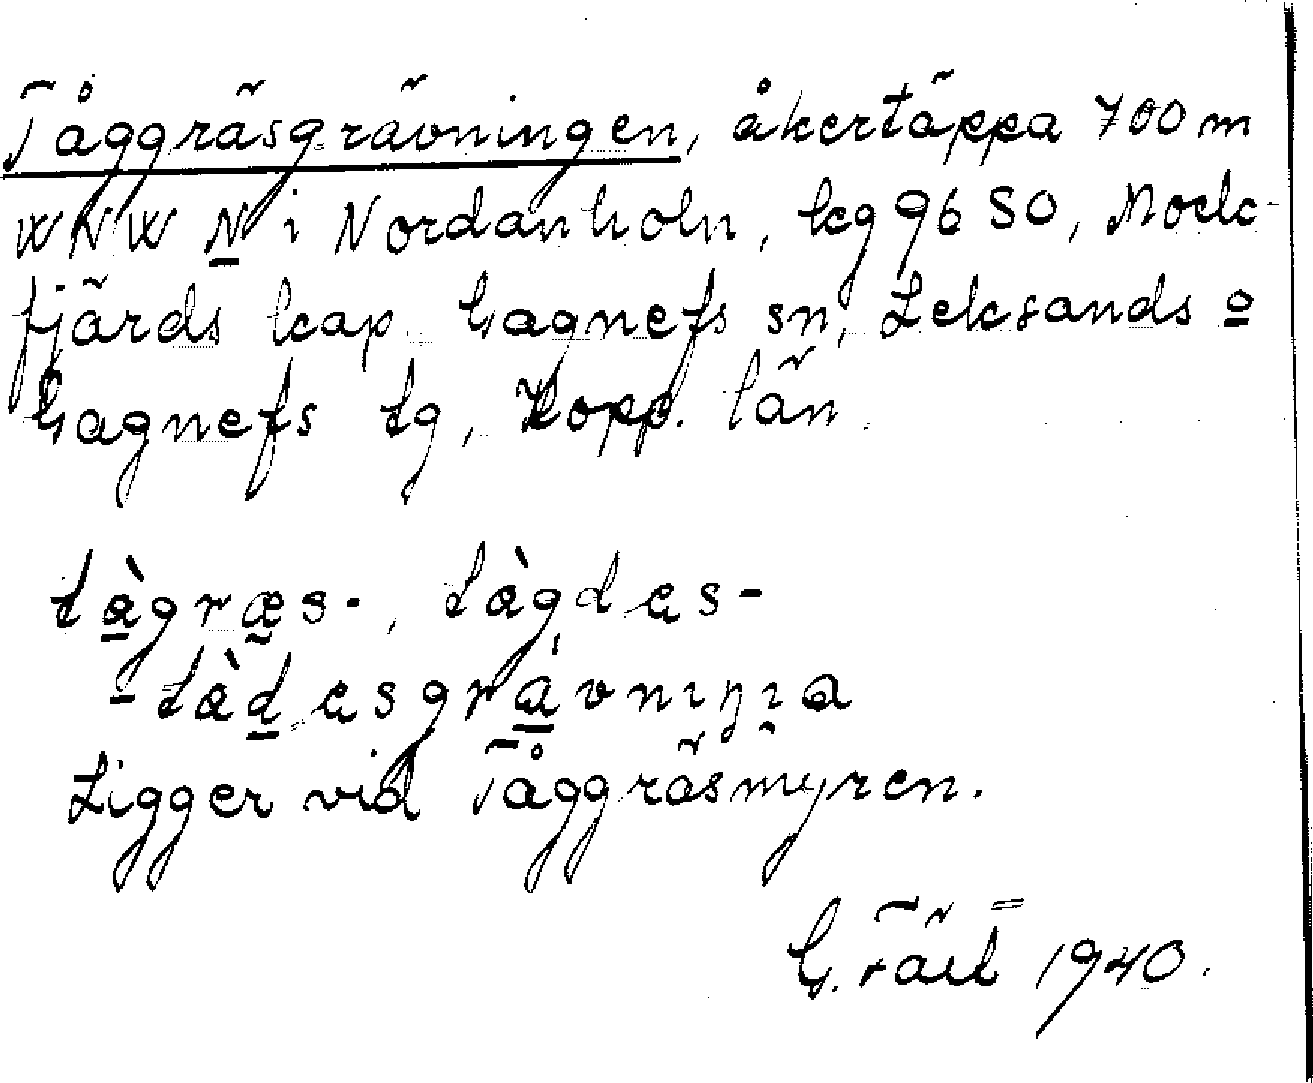 Tåggräsgrävningen, åkertäppa 700 m
WNW N i Nordanholn, kg 96 SO, Mock-
fjärds kap. Gagnefs sn, Leksands o
Gagnefs tg, Kopp. län.
tàgræs-, tàgdes-
-tàdesgrávniŋia
Ligger vid Tåggräsmyren.
G. 1940.